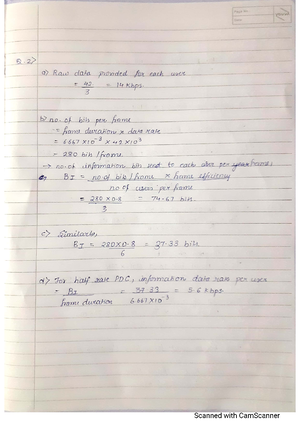 Q.2>
a) Raw data provided for each user
= 42
3
= 14 Kbps
b) no. of bits per frame
= frame duration x data rate
= 6.667 X 10⁻³ X 42 X 10³
= 280 bits/frame.
→ no. of information bits sent to each user per frame,
BI = no. of bits/frame x frame efficiency
no of users per frame
= 280 X 0.8 = 74.67 bits.
3
c) Similarly,
BI = 280 X 0.8 = 37.33 bits
6
d) For half rate PDC, information data rate per user
= BI = 37.33 = 5.6 Kbps
frame duration 6.667 X 10⁻³
Scanned with CamScanner